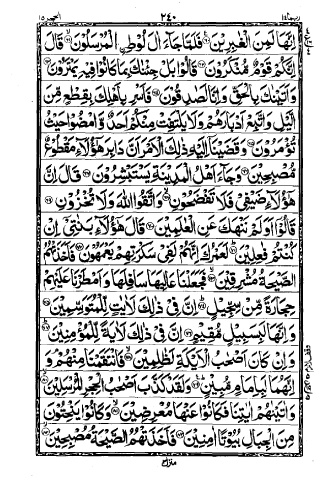 ربما ١٤ ٢٤٠ الحجر ١٥
اِنَّهَا لَمِنَ الْغٰبِرِيْنَ ٦٠ فَلَمَّا جَآءَ اٰلَ لُوْطِ ِۨالْمُرْسَلُوْنَ ٦١ قَالَ
اِنَّكُمْ قَوْمٌ مُّنْكَرُوْنَ ٦٢ قَالُوْا بَلْ جِئْنٰكَ بِمَا كَانُوْا فِيْهِ يَمْتَرُوْنَ ٦٣
وَاَتَيْنٰكَ بِالْحَقِّ وَاِنَّا لَصٰدِقُوْنَ ٦٤ فَاَسْرِ بِاَهْلِكَ بِقِطْعٍ مِّنَ
الَّيْلِ وَاتَّبِعْ اَدْبَارَهُمْ وَلَا يَلْتَفِتْ مِنْكُمْ اَحَدٌ وَّامْضُوْا حَيْثُ
تُؤْمَرُوْنَ ٦٥ وَقَضَيْنَآ اِلَيْهِ ذٰلِكَ الْاَمْرَ اَنَّ دَابِرَ هٰٓؤُلَآءِ مَقْطُوْعٌ
مُّصْبِحِيْنَ ٦٦ وَجَآءَ اَهْلُ الْمَدِيْنَةِ يَسْتَبْشِرُوْنَ ٦٧ قَالَ اِنَّ
هٰٓؤُلَآءِ ضَيْفِيْ فَلَا تَفْضَحُوْنِ ٦٨ وَاتَّقُوا اللّٰهَ وَلَا تُخْزُوْنِ ٦٩
قَالُوْٓا اَوَلَمْ نَنْهَكَ عَنِ الْعٰلَمِيْنَ ٧٠ قَالَ هٰٓؤُلَآءِ بَنٰتِيْٓ اِنْ
كُنْتُمْ فٰعِلِيْنَ ٧١ لَعَمْرُكَ اِنَّهُمْ لَفِيْ سَكْرَتِهِمْ يَعْمَهُوْنَ ٧٢ فَاَخَذَتْهُمُ
الصَّيْحَةُ مُشْرِقِيْنَ ٧٣ فَجَعَلْنَا عَالِيَهَا سَافِلَهَا وَاَمْطَرْنَا عَلَيْهِمْ
حِجَارَةً مِّنْ سِجِّيْلٍ ٧٤ اِنَّ فِيْ ذٰلِكَ لَاٰيٰتٍ لِّلْمُتَوَسِّمِيْنَ ٧٥
وَاِنَّهَا لَبِسَبِيْلٍ مُّقِيْمٍ ٧٦ اِنَّ فِيْ ذٰلِكَ لَاٰيَةً لِّلْمُؤْمِنِيْنَ ٧٧
وَاِنْ كَانَ اَصْحٰبُ الْاَيْكَةِ لَظٰلِمِيْنَ ٧٨ فَانْتَقَمْنَا مِنْهُمْ وَ
اِنَّهُمَا لَبِاِمَامٍ مُّبِيْنٍ ٧٩ وَلَقَدْ كَذَّبَ اَصْحٰبُ الْحِجْرِ الْمُرْسَلِيْنَ ٨٠
وَاٰتَيْنٰهُمْ اٰيٰتِنَا فَكَانُوْا عَنْهَا مُعْرِضِيْنَ ٨١ وَكَانُوْا يَنْحِتُوْنَ
مِنَ الْجِبَالِ بُيُوْتًا اٰمِنِيْنَ ٨٢ فَاَخَذَتْهُمُ الصَّيْحَةُ مُصْبِحِيْنَ ٨٣
منزل ٣